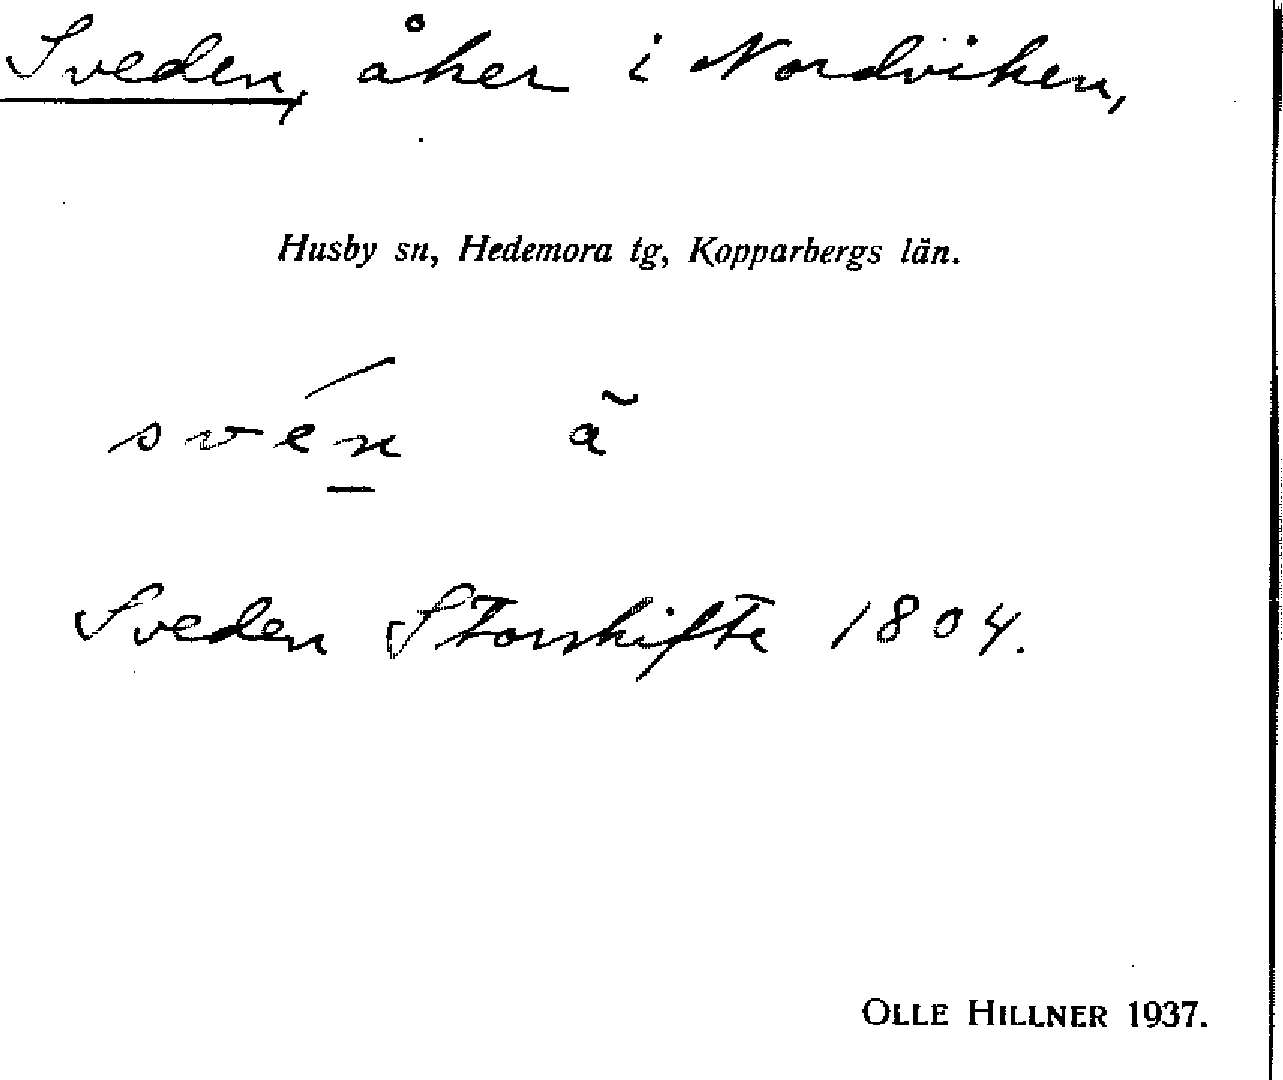 Sveden, åker i Nordviken,
Husby sn, Hedemora tg, Kopparbergs län.
svén ã
Sveden Storskifte 1804.
OLLE HILLNER 1937.